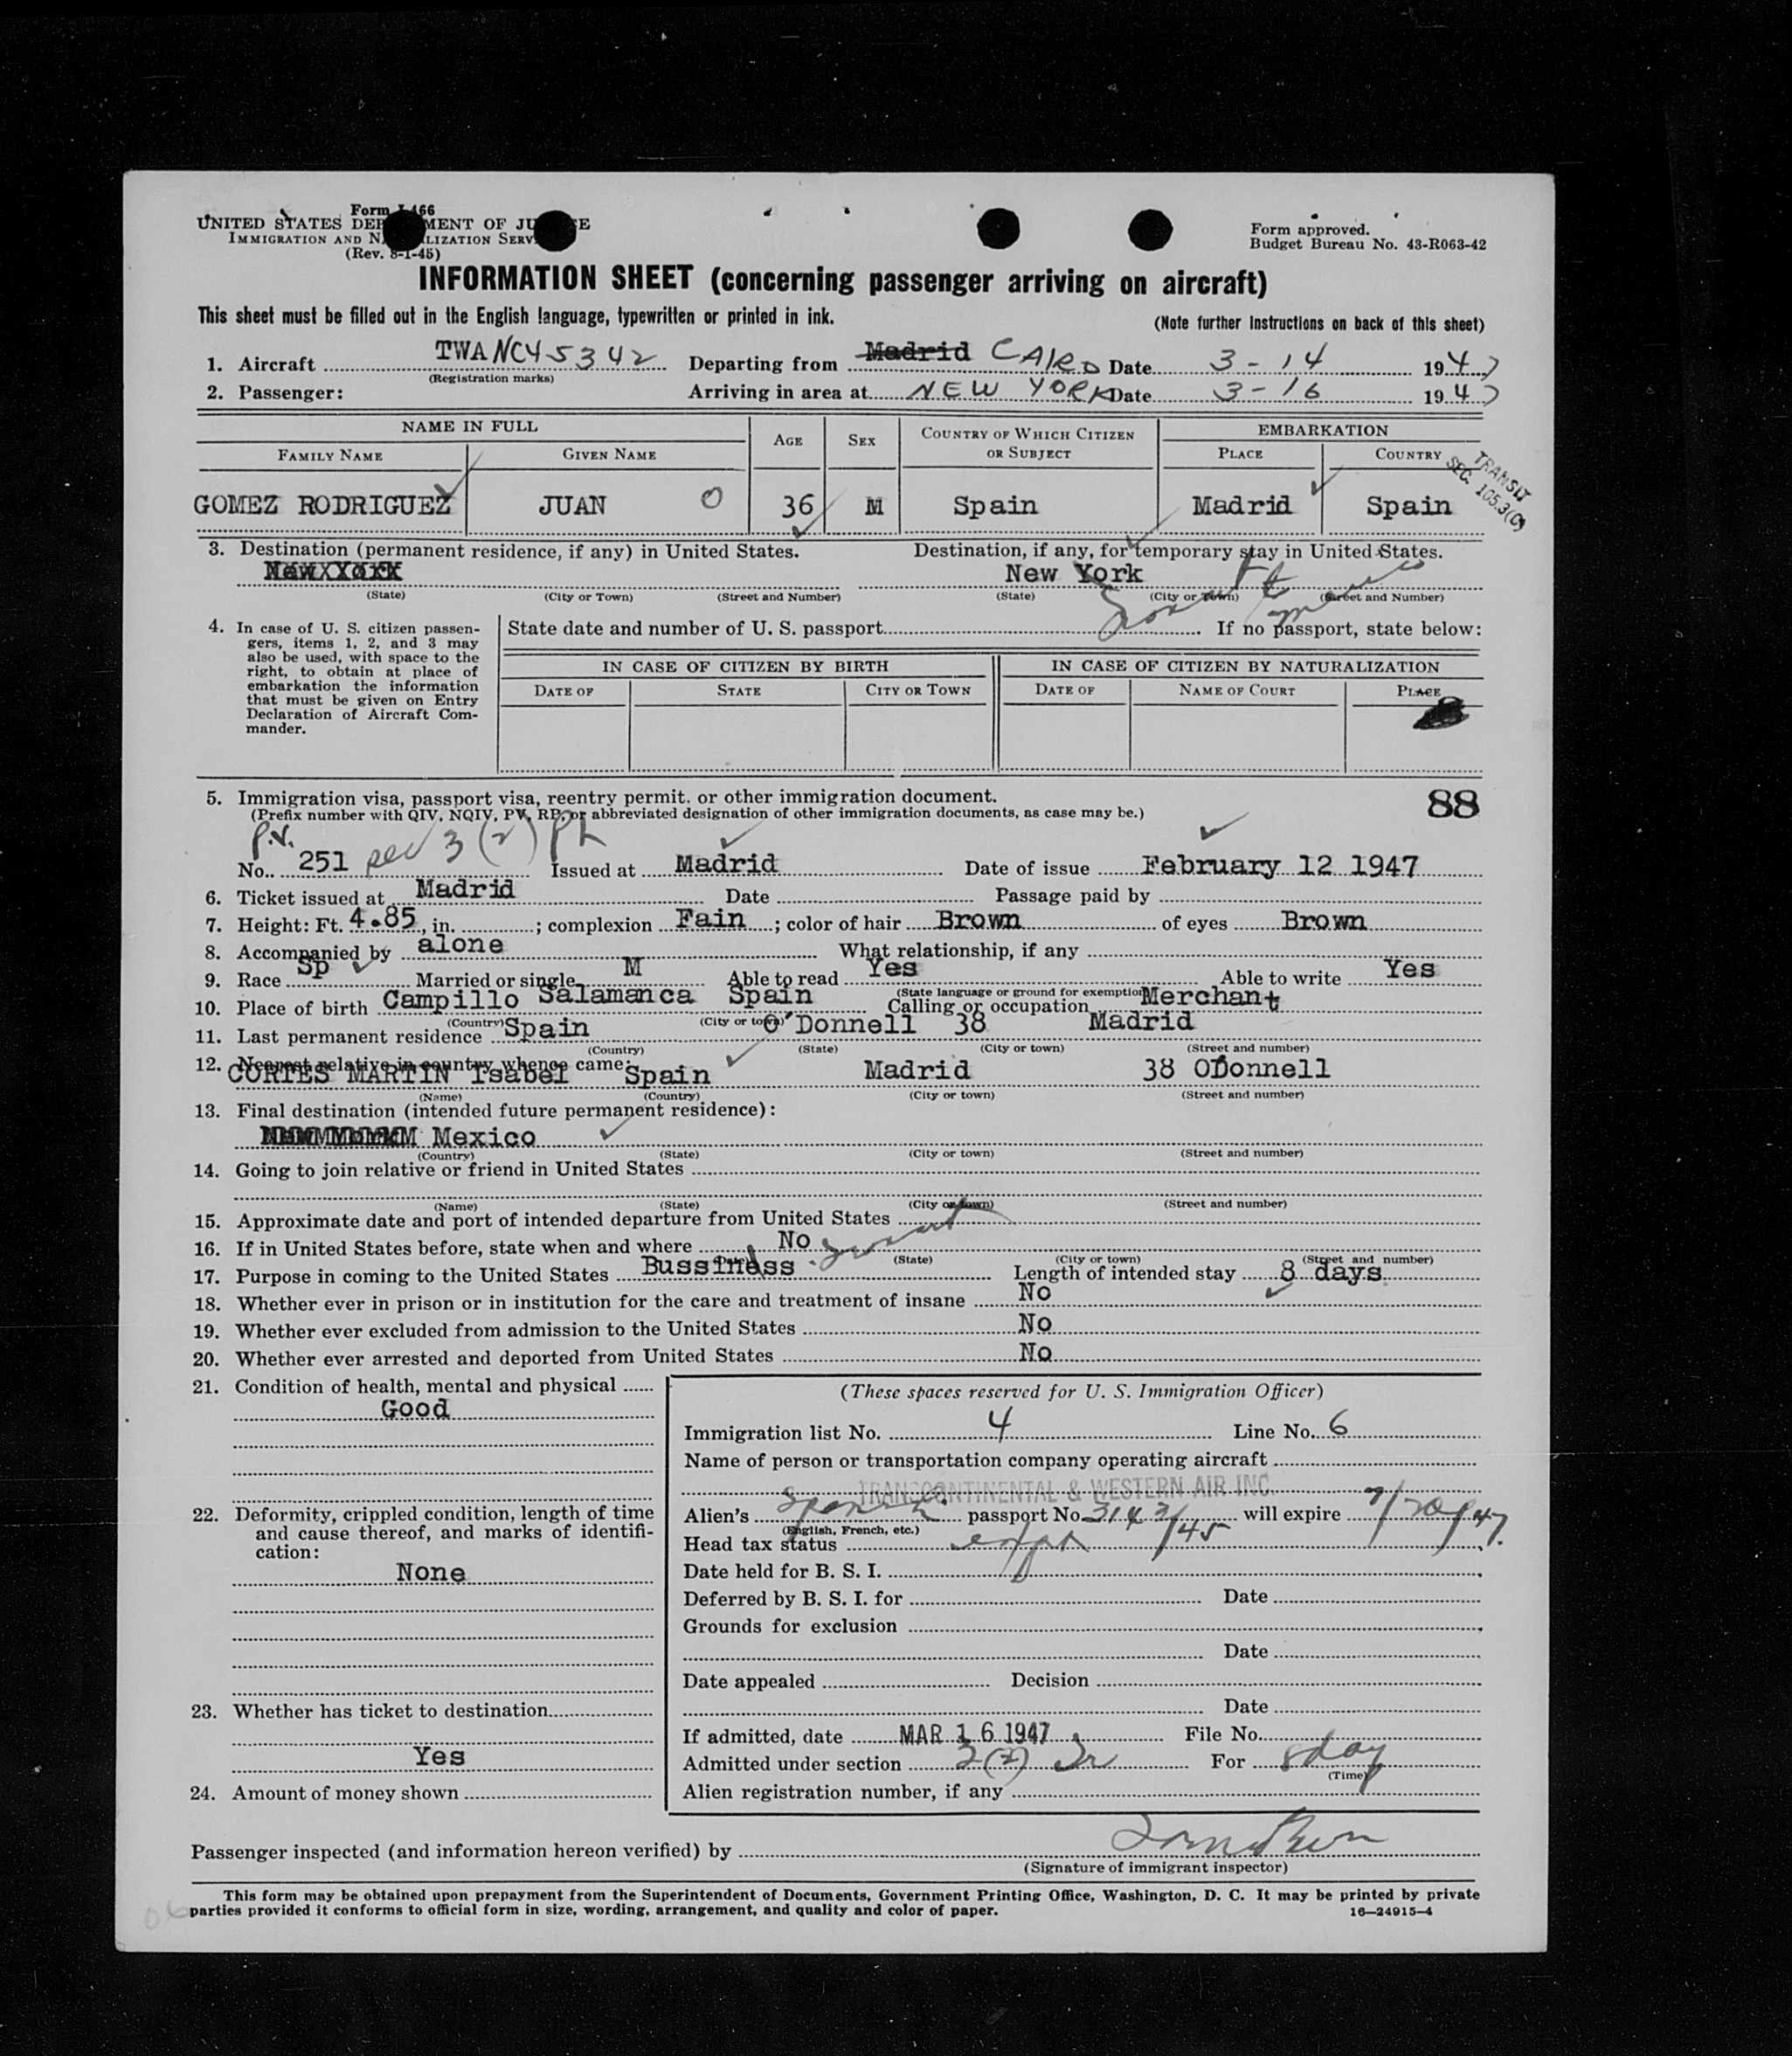 Form I-466
UNITED STATES DEPARTMENT OF JUSTICE
IMMIGRATION AND NATURALIZATION SERVICE
(Rev. 8-1-45)
Form approved.
Budget Bureau No. 43-R063-42
INFORMATION SHEET (concerning passenger arriving on aircraft)
This sheet must be filled out in the English language, typewritten or printed in ink.
(Note further instructions on back of this sheet)
1. Aircraft TWA NC45342 Departing from Madrid CAIRO Date 3-14 1947
(Registration marks)
2. Passenger: Arriving in area at NEW YORK Date 3-16 1947
NAME IN FULL AGE SEX COUNTRY OF WHICH CITIZEN OR SUBJECT EMBARKATION
FAMILY NAME GIVEN NAME PLACE COUNTRY
TRANSIT
SEC. 105.3(C)
GOMEZ RODRIGUEZ JUAN 0 36 M Spain Madrid Spain
3. Destination (permanent residence, if any) in United States. Destination, if any, for temporary stay in United States.
New York New York
(State) (City or Town) (Street and Number) (State) (City or Town) (Street and Number)
4. In case of U. S. citizen passen-
gers, items 1, 2, and 3 may
also be used, with space to the
right, to obtain at place of
embarkation the information
that must be given on Entry
Declaration of Aircraft Com-
mander.
State date and number of U. S. passport If no passport, state below:
IN CASE OF CITIZEN BY BIRTH IN CASE OF CITIZEN BY NATURALIZATION
DATE OF STATE CITY OR TOWN DATE OF NAME OF COURT PLACE
88
5. Immigration visa, passport visa, reentry permit, or other immigration document.
(Prefix number with QIV, NQIV, PV, RP, or abbreviated designation of other immigration documents, as case may be.)
P.V.
No. 251 3(2) Issued at Madrid Date of issue February 12 1947
6. Ticket issued at Madrid Date Passage paid by
7. Height: Ft. 4.85, in. ; complexion Fain ; color of hair Brown of eyes Brown
8. Accompanied by alone What relationship, if any
9. Race Sp Married or single M Able to read Yes Able to write Yes
(State language or ground for exemption)
10. Place of birth Campillo Salamanca Spain Calling or occupation Merchant
(Country) (City or town)
11. Last permanent residence Spain O'Donnell 38 Madrid
(Country) (State) (City or town) (Street and number)
12. Nearest relative in country whence came:
CORTES MARTIN Isabel Spain Madrid 38 ODonnell
(Name) (Country) (City or town) (Street and number)
13. Final destination (intended future permanent residence):
Mexico
(Country) (State) (City or town) (Street and number)
14. Going to join relative or friend in United States
(Name) (State) (City or town) (Street and number)
15. Approximate date and port of intended departure from United States
16. If in United States before, state when and where No
(State) (City or town) (Street and number)
17. Purpose in coming to the United States Bussiness Length of intended stay 8 days
18. Whether ever in prison or in institution for the care and treatment of insane No
19. Whether ever excluded from admission to the United States No
20. Whether ever arrested and deported from United States No
21. Condition of health, mental and physical
Good
22. Deformity, crippled condition, length of time
and cause thereof, and marks of identifi-
cation:
None
23. Whether has ticket to destination
Yes
24. Amount of money shown
(These spaces reserved for U. S. Immigration Officer)
Immigration list No. 4 Line No. 6
Name of person or transportation company operating aircraft
TRANSCONTINENTAL & WESTERN AIR INC.
Alien's Spanish passport No. 3142/45 will expire 7/20/47.
(English, French, etc.)
Head tax status
Date held for B. S. I.
Deferred by B. S. I. for Date
Grounds for exclusion
Date
Date appealed Decision
Date
If admitted, date MAR 16 1947 File No.
Admitted under section 3(2) For 8 day
(Time)
Alien registration number, if any
Passenger inspected (and information hereon verified) by
(Signature of immigrant inspector)
This form may be obtained upon prepayment from the Superintendent of Documents, Government Printing Office, Washington, D. C. It may be printed by private
parties provided it conforms to official form in size, wording, arrangement, and quality and color of paper.
16—24915-4